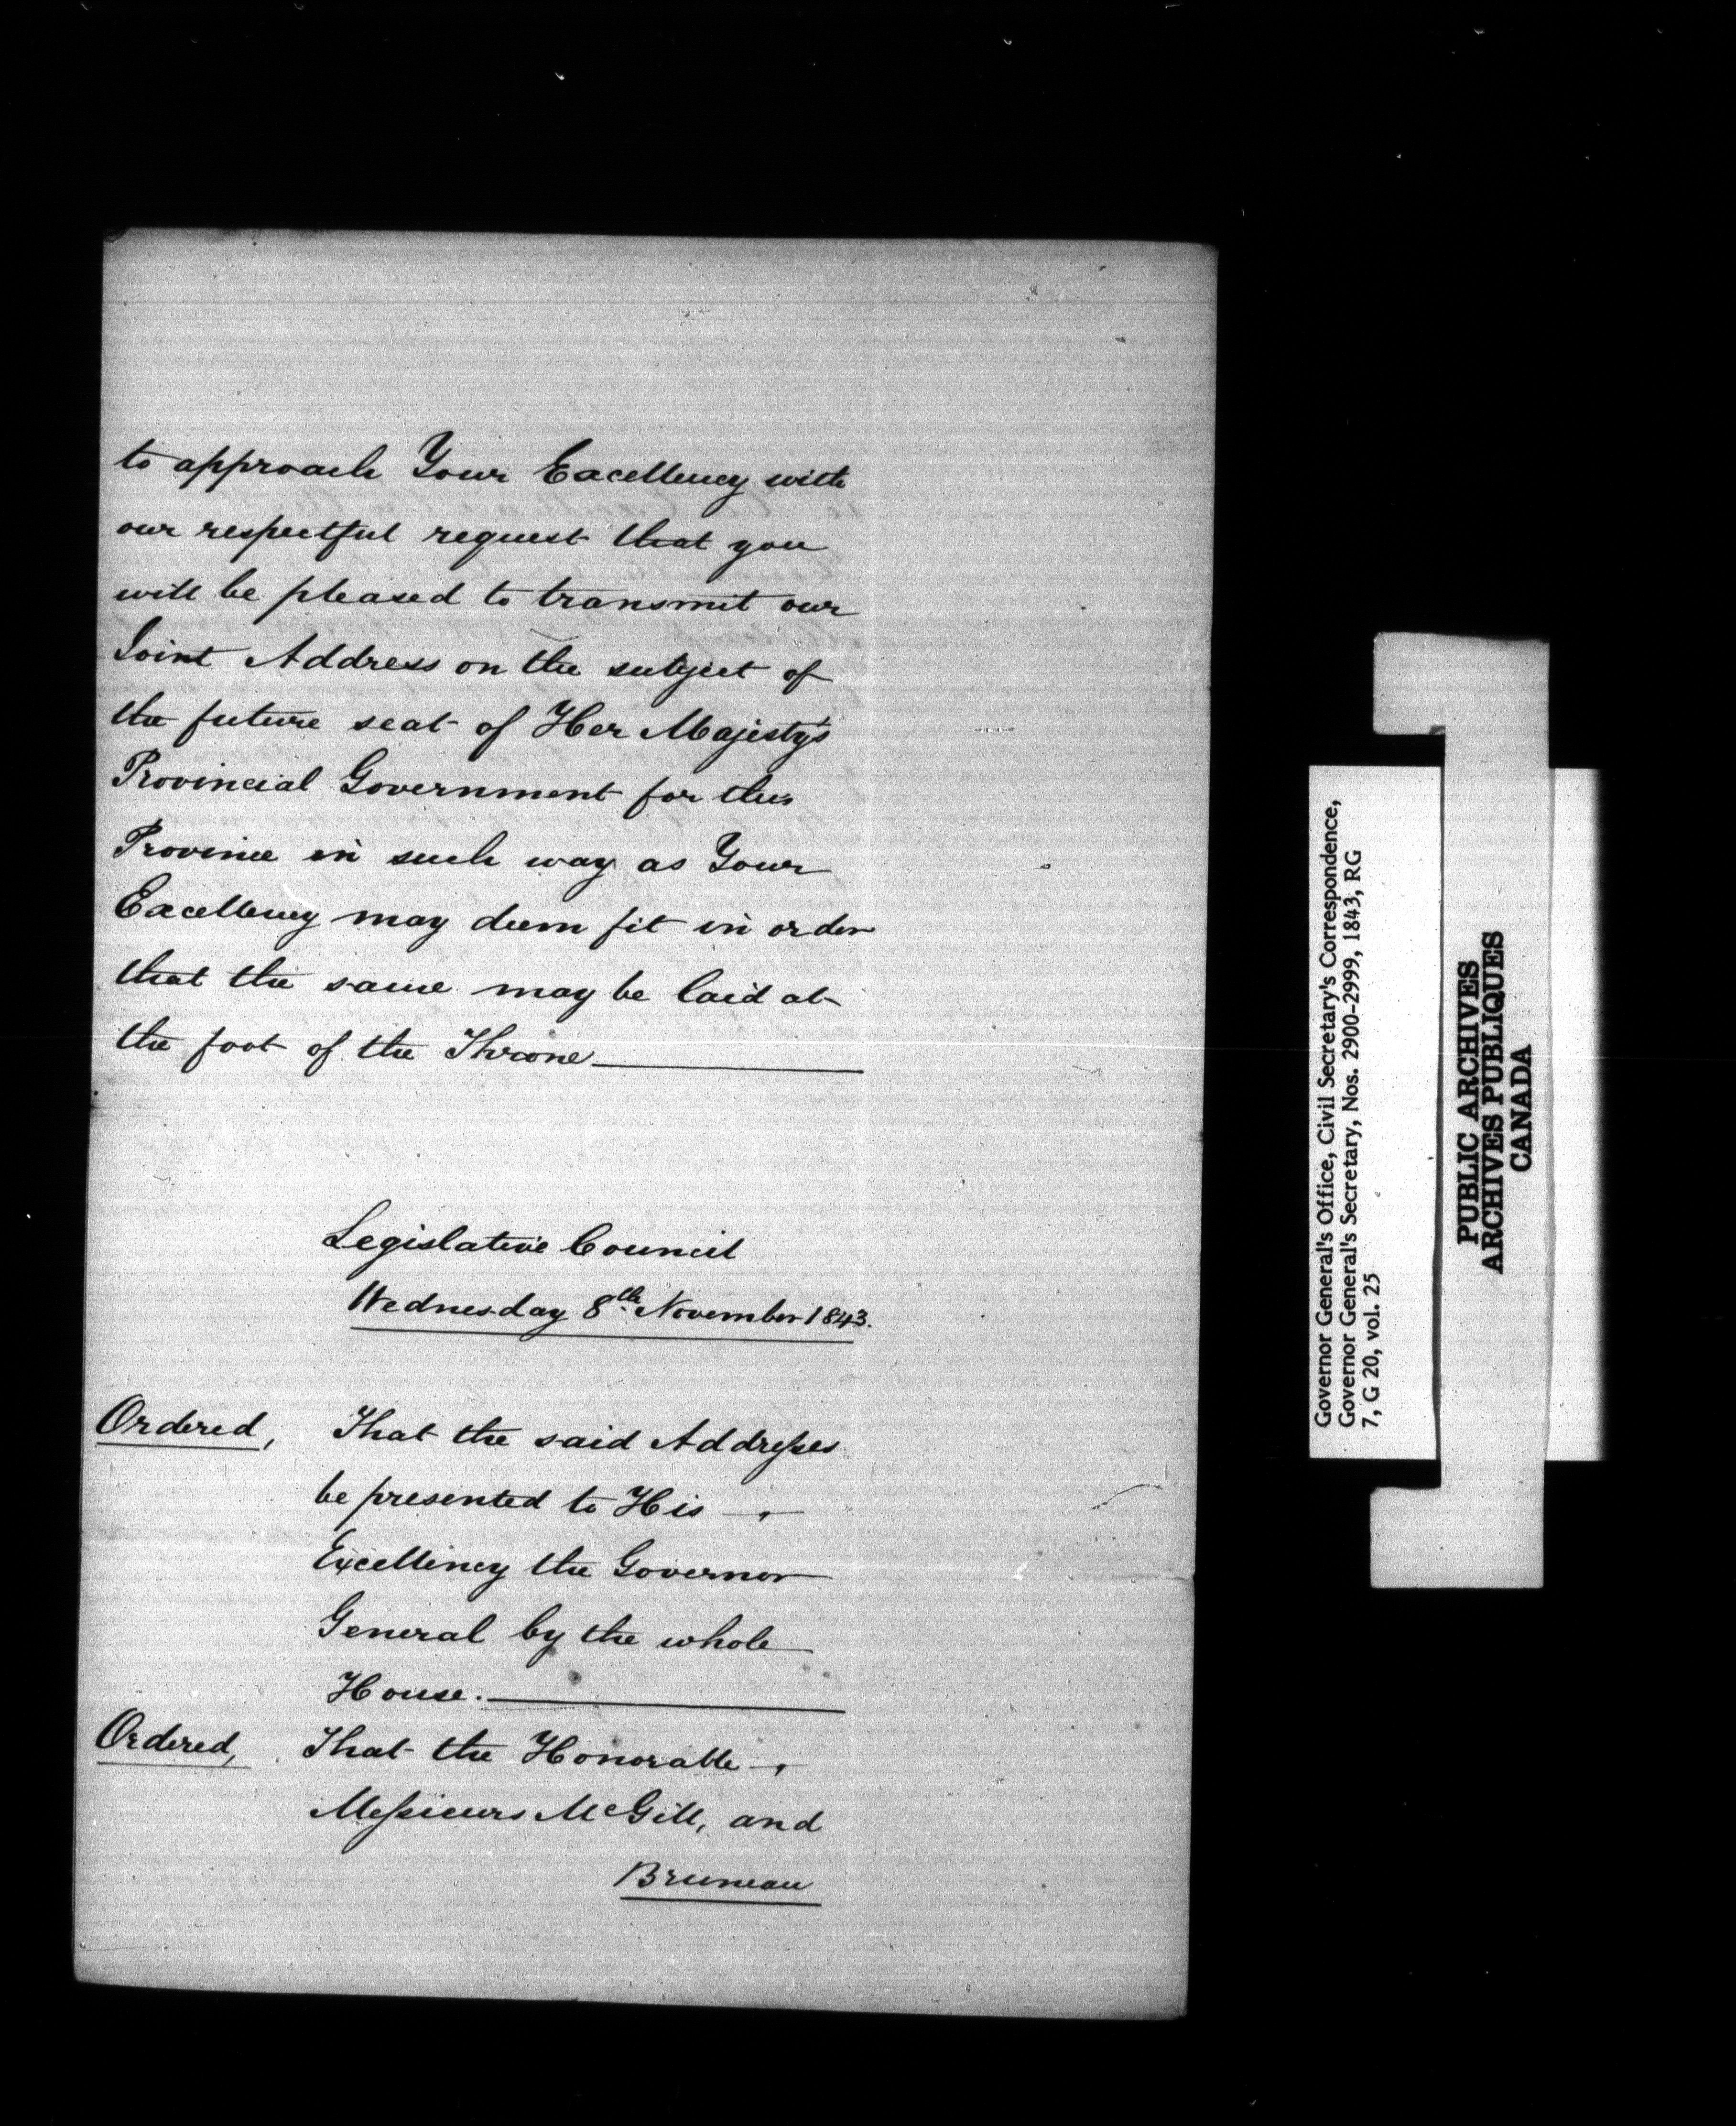 to approach Your Excellency with
our respectful request that you
will be pleased to transmit our
Joint Address on the subject of
the future seat of Her Majesty's
Provincial Government for this
Province in such way as Your
Excellency may deem fit in order
that the same may be laid at
the foot of the Throne
Legislative Council
Wednesday 8th November 1843.
Ordered, That the said Addresses
be presented to His
Excellency the Governor
General by the whole
House.
Ordered, That the Honorable
Messieurs McGill, and
Bruneau
Governor General's Office, Civil Secretary's Correspondence,
Governor General's Secretary, Nos. 2900-2999, 1843, RG
7, G 20, vol. 25
PUBLIC ARCHIVES
ARCHIVES PUBLIQUES
CANADA